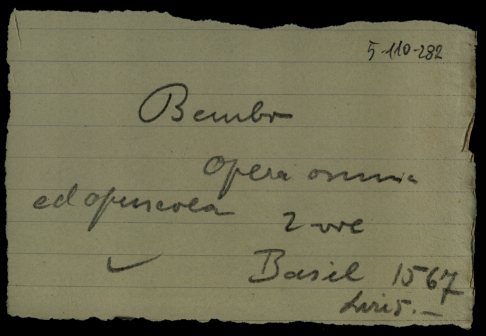 5-110-282
Bembo
Opera omnia
ed opuscola 2 vol
Basil 1567
Lire 5.-